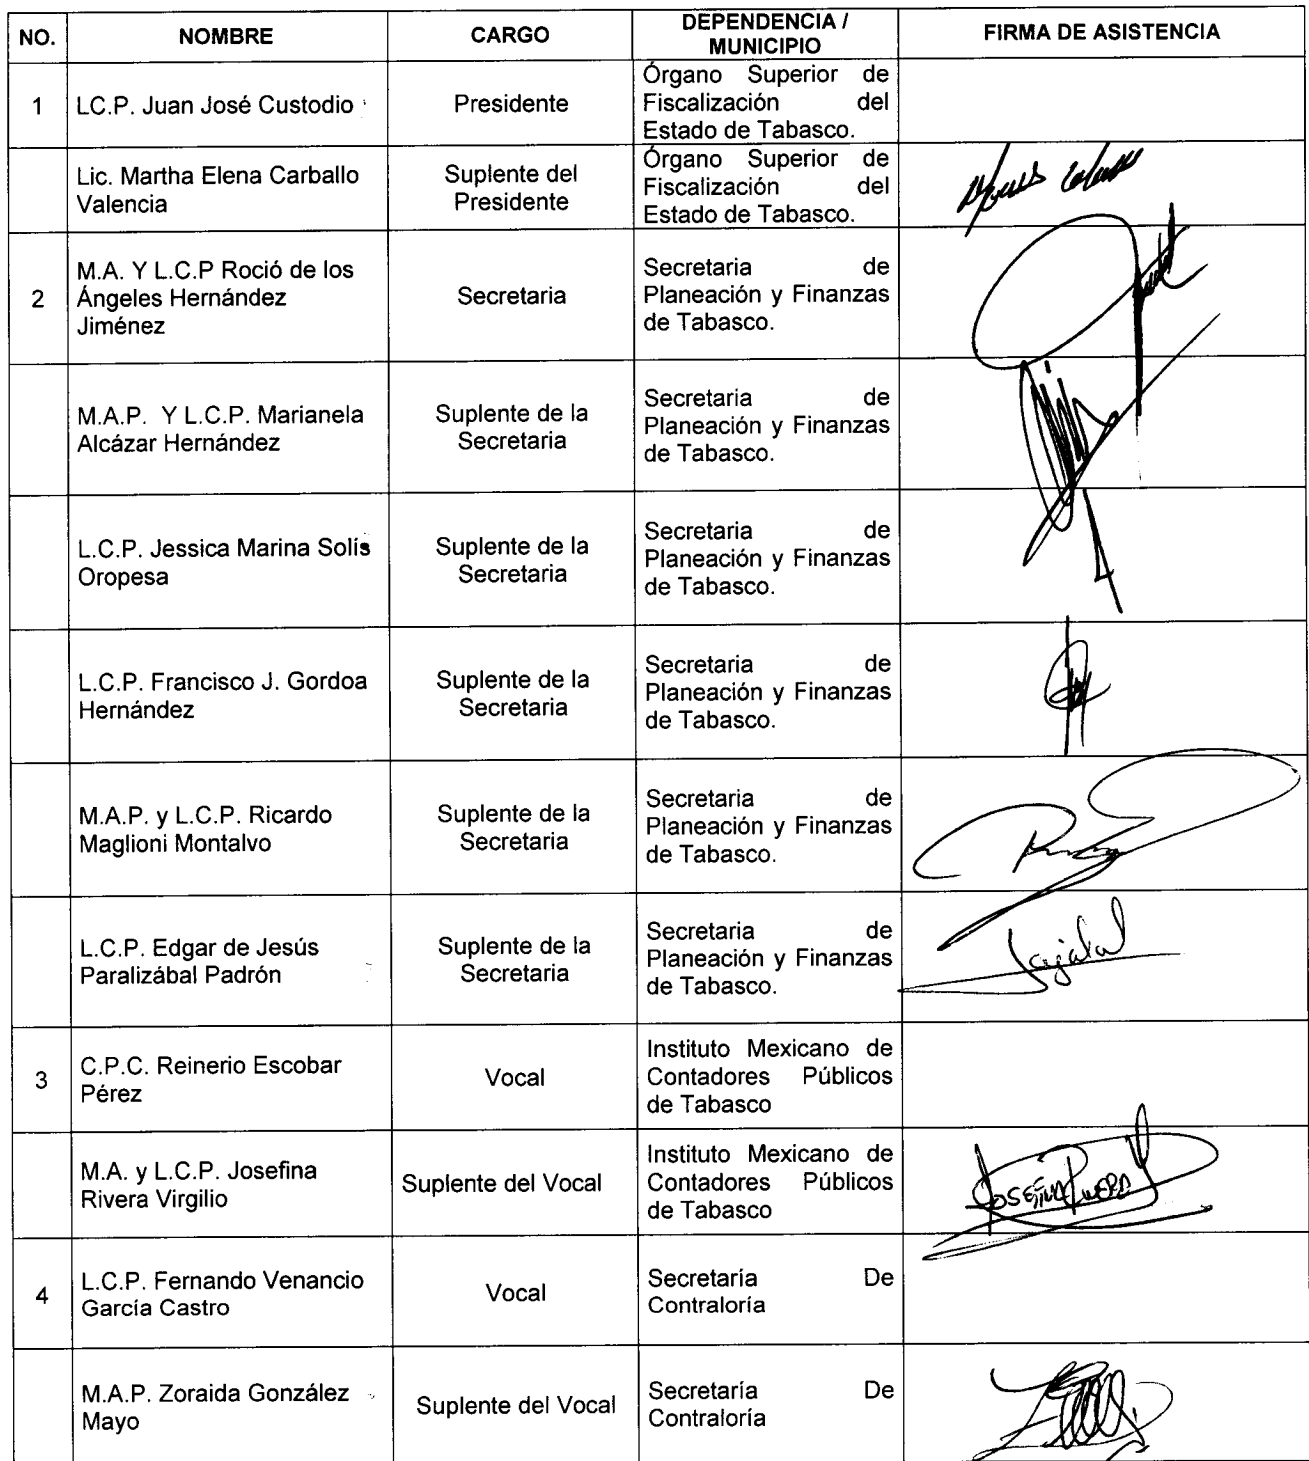 NO. NOMBRE CARGO DEPENDENCIA / MUNICIPIO FIRMA DE ASISTENCIA
1 LC.P. Juan José Custodio Presidente Órgano Superior de
Fiscalización del
Estado de Tabasco.
Lic. Martha Elena Carballo
Valencia
Suplente del
Presidente
Órgano Superior de
Fiscalización del
Estado de Tabasco.
2
M.A. Y L.C.P Roció de los
Ángeles Hernández
Jiménez
Secretaria
Secretaria de
Planeación y Finanzas
de Tabasco.
M.A.P. Y L.C.P. Marianela
Alcázar Hernández
Suplente de la
Secretaria
Secretaria de
Planeación y Finanzas
de Tabasco.
L.C.P. Jessica Marina Solís
Oropesa
Suplente de la
Secretaria
Secretaria de
Planeación y Finanzas
de Tabasco.
L.C.P. Francisco J. Gordoa
Hernández
Suplente de la
Secretaria
Secretaria de
Planeación y Finanzas
de Tabasco.
M.A.P. y L.C.P. Ricardo
Maglioni Montalvo
Suplente de la
Secretaria
Secretaria de
Planeación y Finanzas
de Tabasco.
L.C.P. Edgar de Jesús
Paralizábal Padrón
Suplente de la
Secretaria
Secretaria de
Planeación y Finanzas
de Tabasco.
3
C.P.C. Reinerio Escobar
Pérez
Vocal
Instituto Mexicano de
Contadores Públicos
de Tabasco
M.A. y L.C.P. Josefina
Rivera Virgilio
Suplente del Vocal
Instituto Mexicano de
Contadores Públicos
de Tabasco
4
L.C.P. Fernando Venancio
García Castro
Vocal
Secretaría De
Contraloría
M.A.P. Zoraida González
Mayo
Suplente del Vocal
Secretaría De
Contraloría